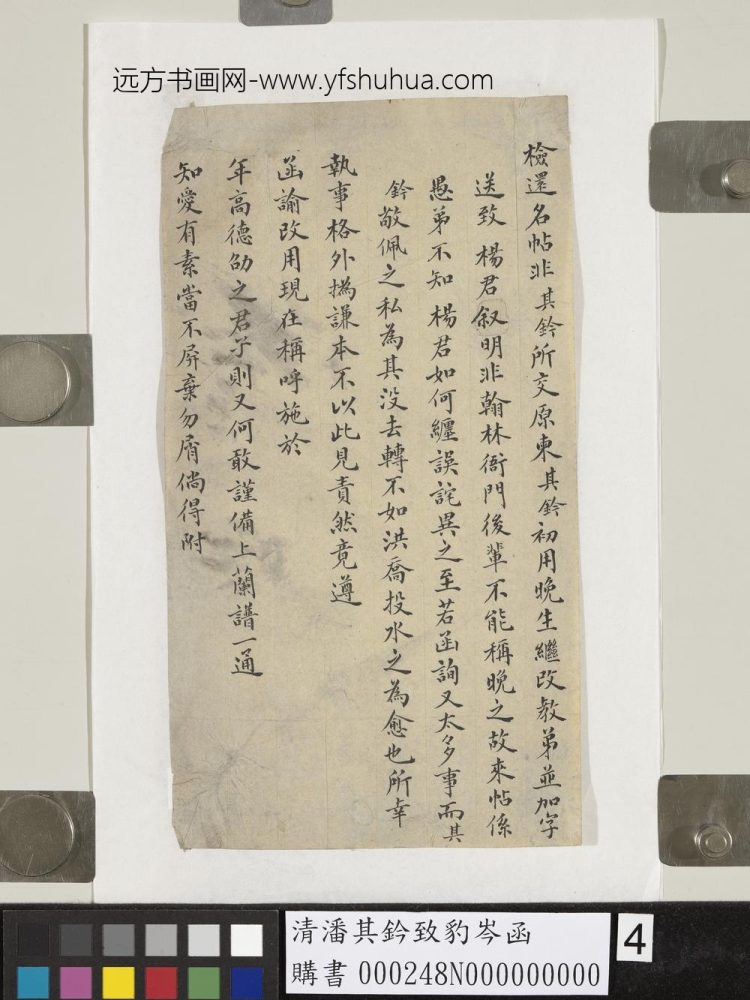 远方书画网-www.yfshuhua.com
檢還名帖非其鈐所交原柬其鈐初用晚生繼改教弟並加字
送致楊君叙明非翰林衙門後輩不能稱晚之故來帖係
愚弟不知楊君如何纏誤詫異之至若函詢又太多事而其
鈐敬佩之私為其没去轉不如洪喬投水之為愈也所幸
執事格外撝謙本不以此見責然竟遵
函諭改用現在稱呼施於
年高德劭之君子則又何敢謹備上蘭譜一通
知愛有素當不屏棄勿屑倘得附
清潘其鈐致豹岑函
購書 000248N000000000
4